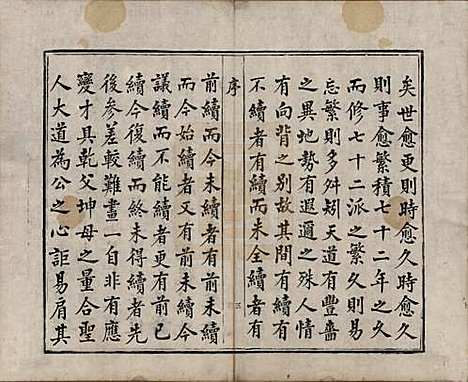 矣世愈更則時愈久
則事愈繁積七十二年之久
而修七十二派之繁久則易
忘繁則多舛矧天道有豐嗇
之異地勢有遐邇之殊人情
有向背之別故其間有續有
不續者有續而未全續者有
序
前續而今未續者有前未續
而今始續者又有前未續今
議續而不能續者更有前已
續今復續而終未得續者先
後參差較難畫一自非有應
變才具乾父坤母之量合聖
人大道為公之心詎易肩其